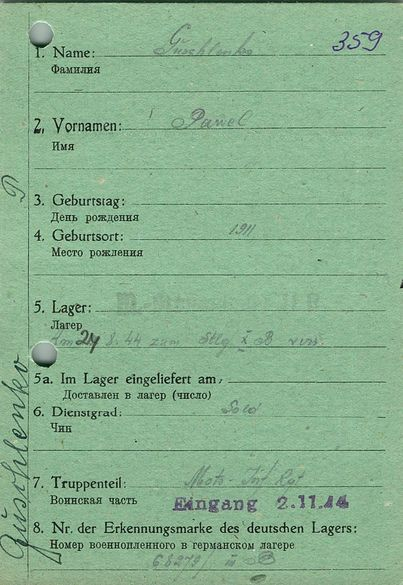 359
1. Name: Guschlenko
Фамилия
2. Vornamen: Pawel
Имя
3. Geburtstag:
День рождения
4. Geburtsort: 1911
Место рождения
5. Lager:
Лагер
Am 24 8.44 zum Stlg X B vers.
5a. Im Lager eingeliefert am
Доставлен в лагер (число)
6. Dienstgrad: Sold
Чин
7. Truppenteil: Moto-Inf Rgt
Воинская часть
Eingang 2.11.44
8. Nr. der Erkennungsmarke des deutschen Lagers:
Номер военнопленного в германском лагере
68279/ III B
Guschlenko P